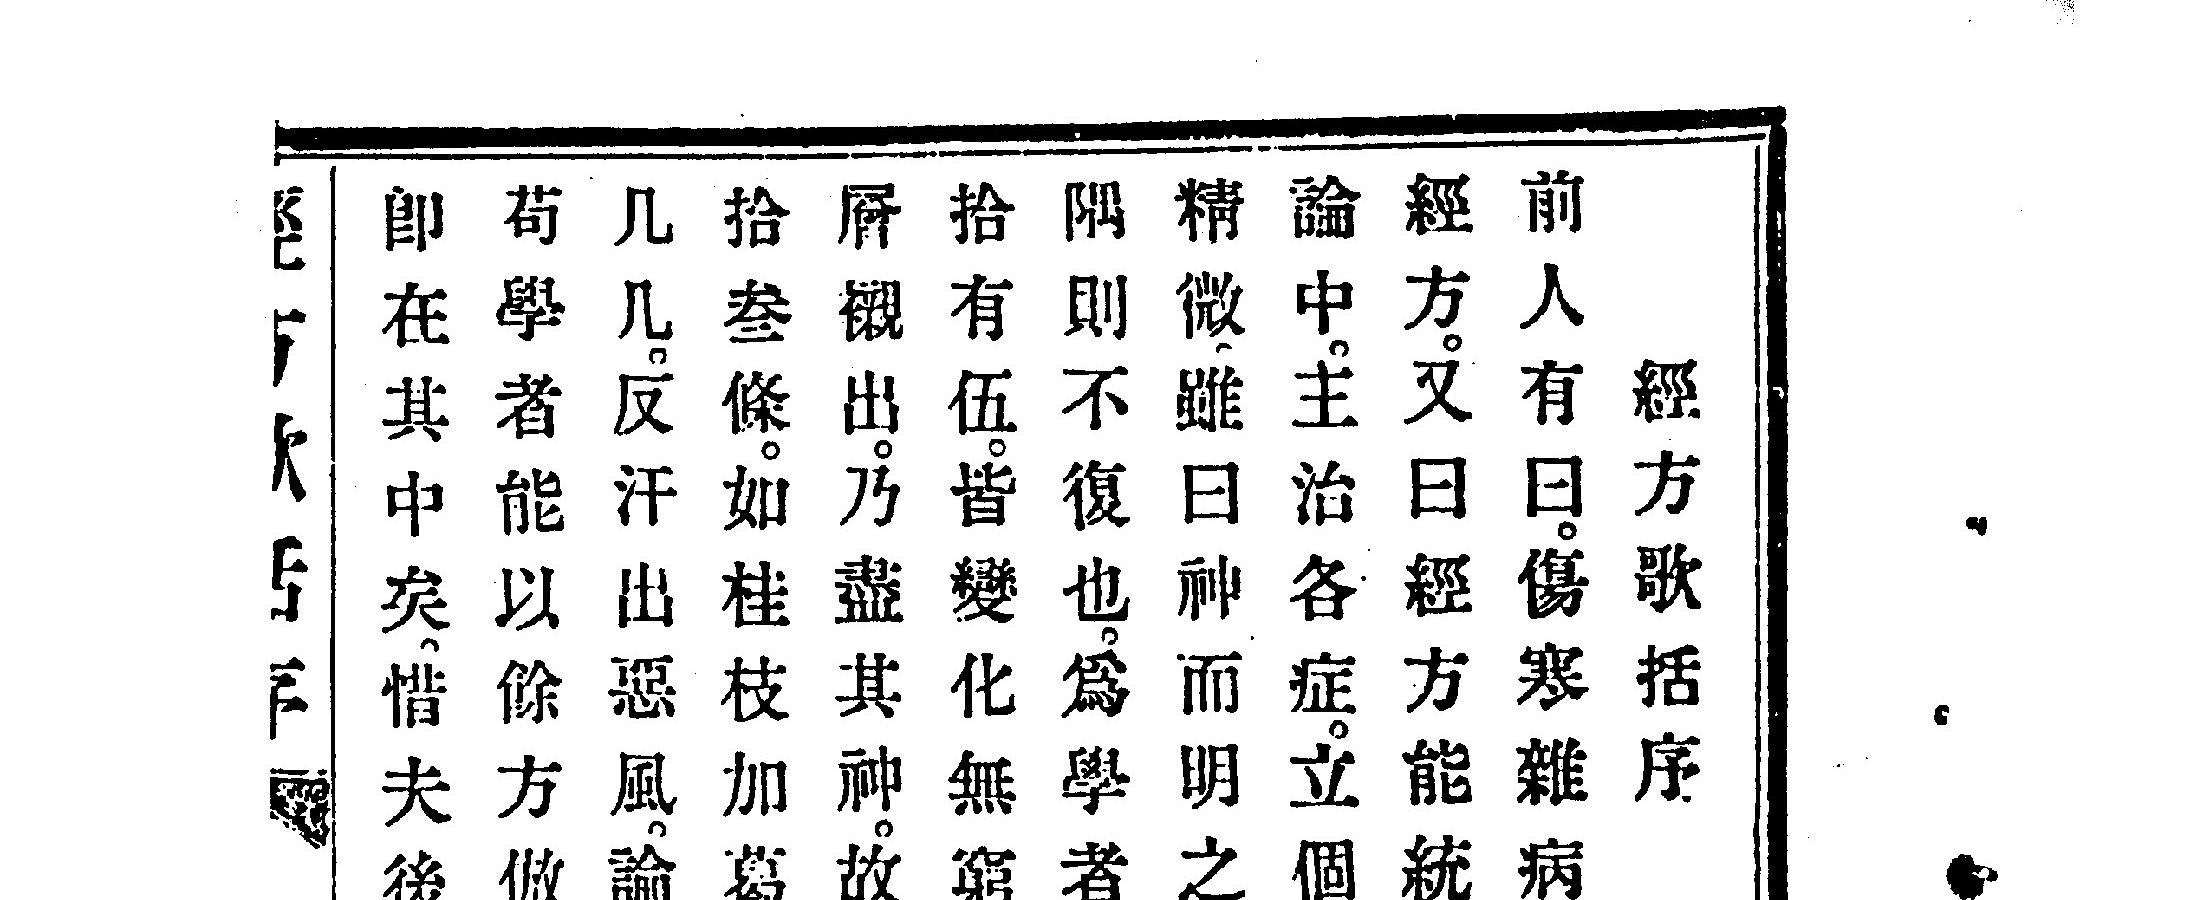 經方歌括序
前人有曰。傷寒雜病
經方。又曰經方能統
論中。主治各症。立個
精微。雖曰神而明之
隅則不復也。爲學者
拾有伍。皆變化無窮
層襯出。乃盡其神。故
拾叁條。如桂枝加葛
几几。反汗出惡風。論
苟學者能以餘方倣
卽在其中矣。惜夫後